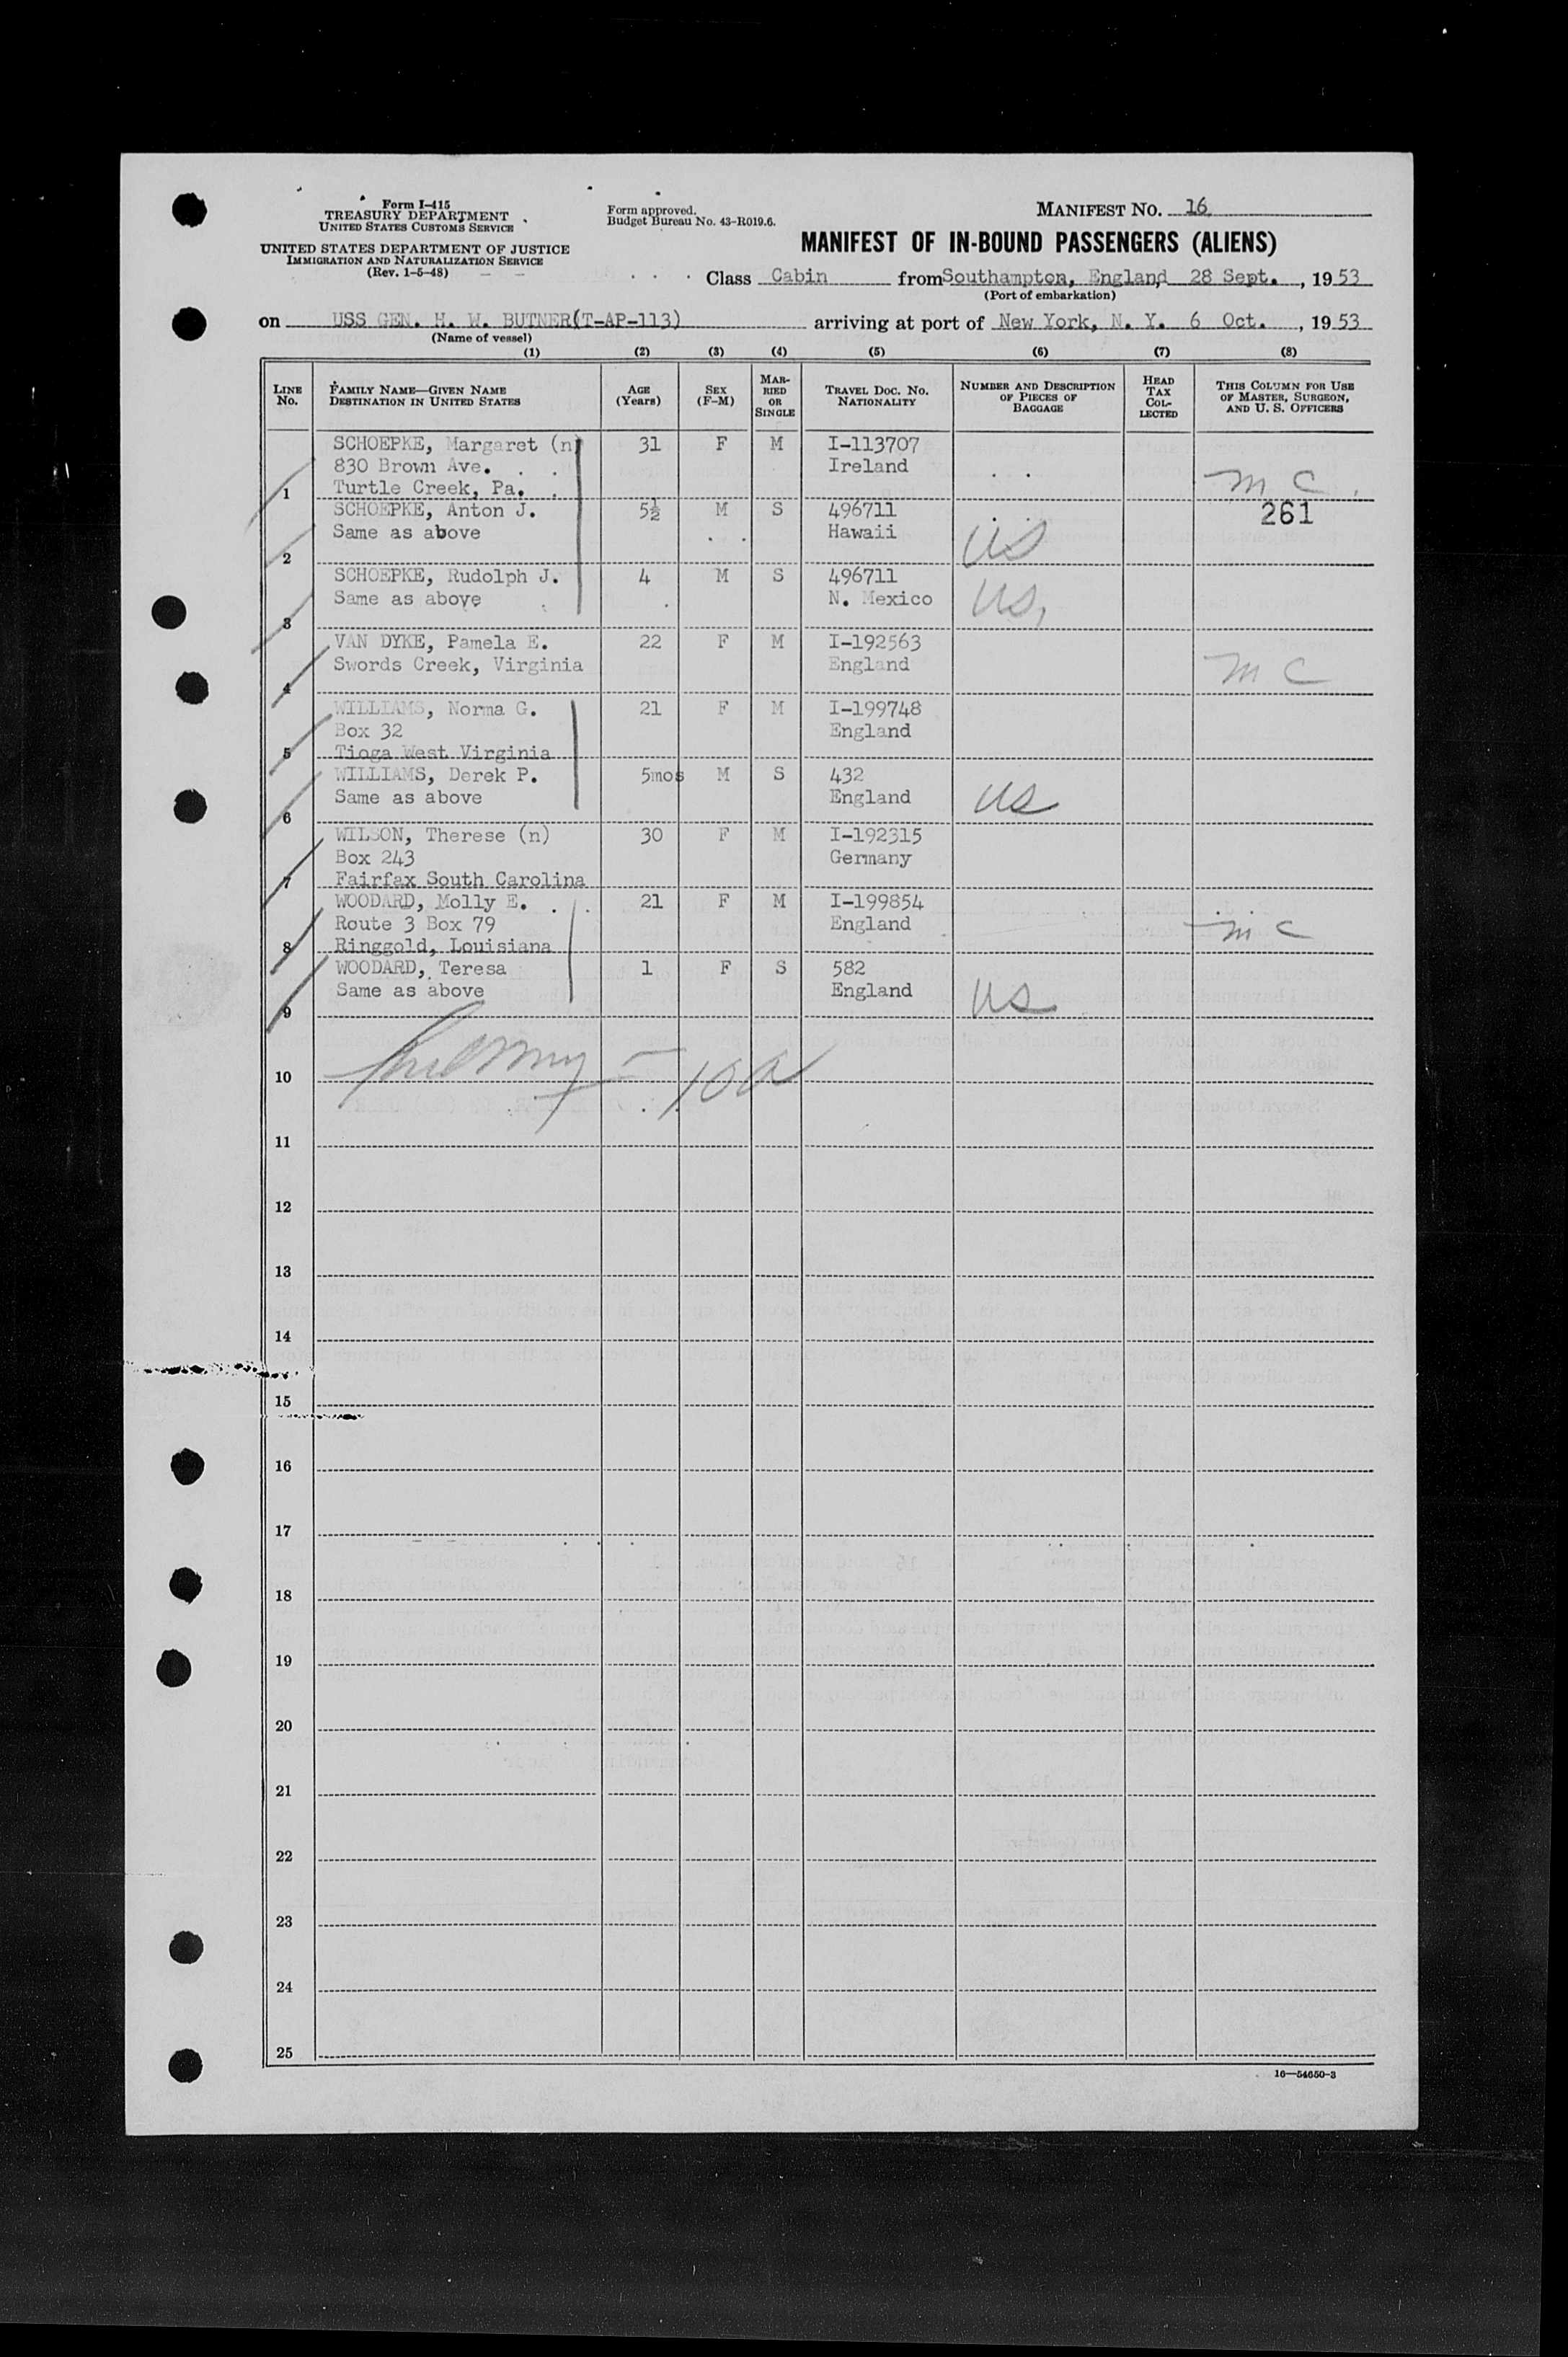 Form I-415
TREASURY DEPARTMENT
UNITED STATES CUSTOMS SERVICE
UNITED STATES DEPARTMENT OF JUSTICE
IMMIGRATION AND NATURALIZATION SERVICE
(Rev. 1-5-48)
Form approved.
Budget Bureau No. 43-R019.6.
MANIFEST NO. 16
MANIFEST OF IN-BOUND PASSENGERS (ALIENS)
Class Cabin from Southampton, England, 28 Sept., 1953
(Port of embarkation)
on USS GEN. H. W. BUTNER(T-AP-113) arriving at port of New York, N. Y. 6 Oct., 1953
(Name of vessel)
(1) (2) (3) (4) (5) (6) (7) (8)
LINE NO. FAMILY NAME—GIVEN NAME DESTINATION IN UNITED STATES AGE (Years) SEX (F-M) MARRIED OR SINGLE TRAVEL DOC. NO. NATIONALITY NUMBER AND DESCRIPTION OF PIECES OF BAGGAGE HEAD TAX COLLECTED THIS COLUMN FOR USE OF MASTER, SURGEON, AND U. S. OFFICERS
SCHOEPKE, Margaret (n) 31 F M I-113707
830 Brown Ave. Ireland
1 Turtle Creek, Pa. M C
SCHOEPKE, Anton J. 5½ M S 496711 261
Same as above Hawaii US
2
SCHOEPKE, Rudolph J. 4 M S 496711
Same as above N. Mexico US
3
VAN DYKE, Pamela E. 22 F M I-192563
Swords Creek, Virginia England M C
4
WILLIAMS, Norma G. 21 F M I-199748
Box 32 England
5 Tioga West Virginia
WILLIAMS, Derek P. 5mos M S 432
Same as above England US
6
WILSON, Therese (n) 30 F M I-192315
Box 243 Germany
7 Fairfax South Carolina
WOODARD, Molly E. 21 F M I-199854
Route 3 Box 79 England M C
8 Ringgold, Louisiana
WOODARD, Teresa 1 F S 582
Same as above England US
9
10
11
12
13
14
15
16
17
18
19
20
21
22
23
24
25
16—54650-3